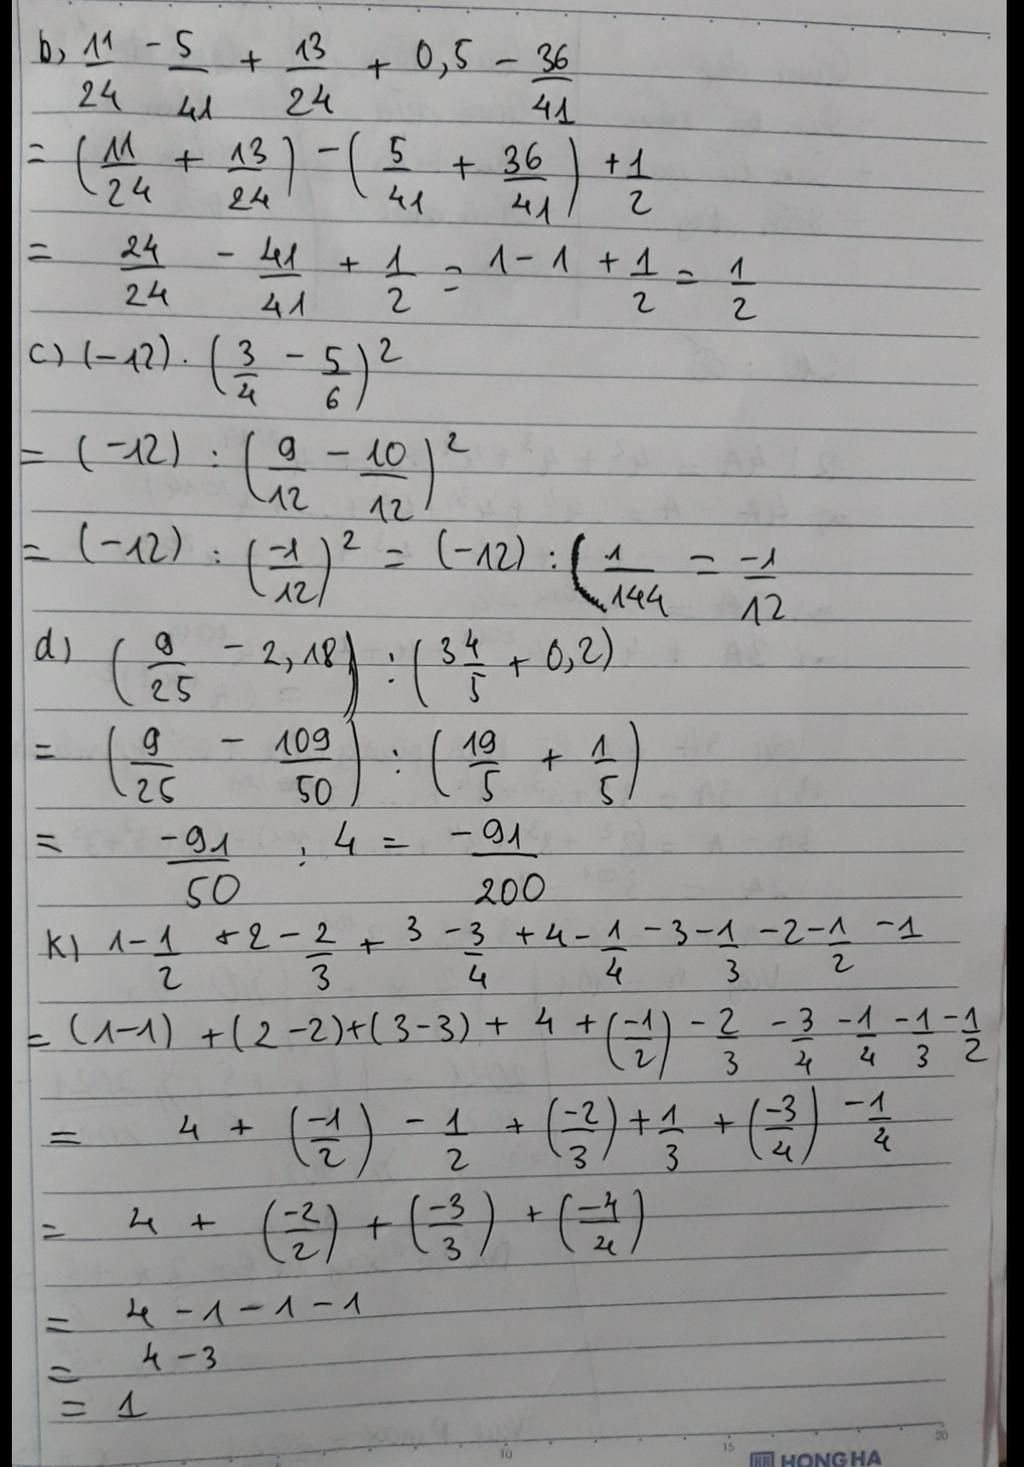 b, 11/24 - 5/41 + 13/24 + 0,5 - 36/41
= (11/24 + 13/24) - (5/41 + 36/41) + 1/2
= 24/24 - 41/41 + 1/2 = 1 - 1 + 1/2 = 1/2
c) (-12) . (3/4 - 5/6)²
= (-12) : (9/12 - 10/12)²
= (-12) : (-1/12)² = (-12) : (1/144 = -1/12
d) (9/25 - 2,18) : (3 4/5 + 0,2)
= (9/25 - 109/50) : (19/5 + 1/5)
= -91/50 : 4 = -91/200
k) 1 - 1/2 + 2 - 2/3 + 3 - 3/4 + 4 - 1/4 - 3 - 1/3 - 2 - 1/2 - 1
= (1-1) + (2-2) + (3-3) + 4 + (-1/2) - 2/3 - 3/4 - 1/4 - 1/3 - 1/2
= 4 + (-1/2) - 1/2 + (-2/3) + 1/3 + (-3/4) - 1/4
= 4 + (-2/2) + (-3/3) + (-4/4)
= 4 - 1 - 1 - 1
= 4 - 3
= 1
10 15 20
HONG HA